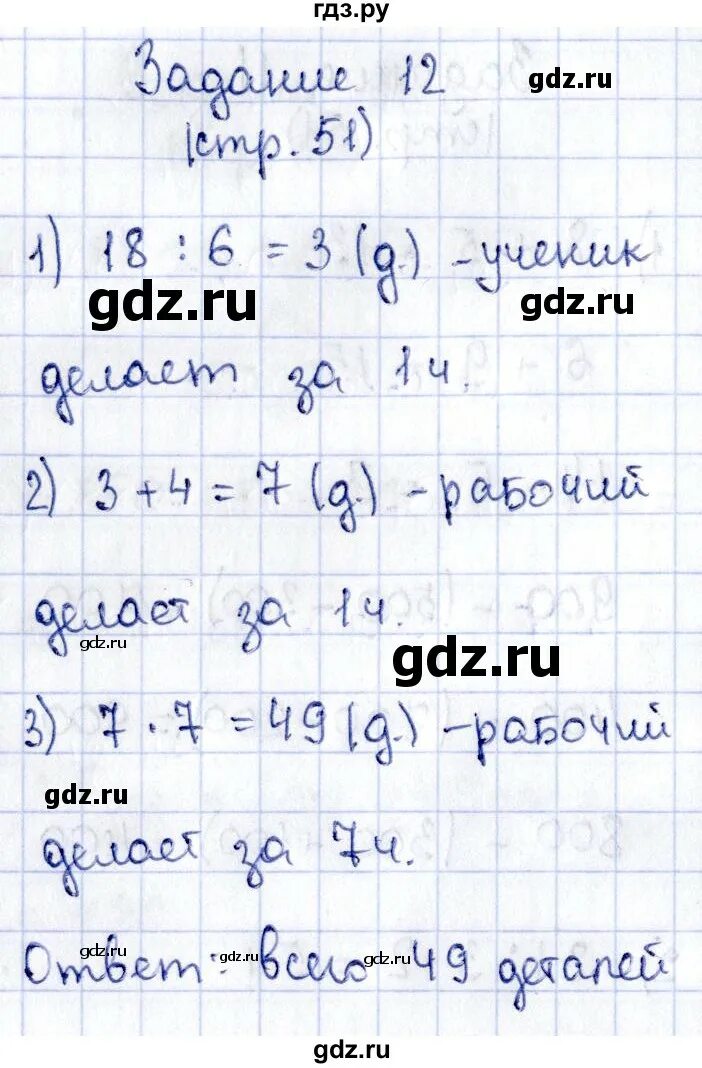 гдз.ру
Задание 12
gdz.ru
(стр. 51)
1) 18 : 6 = 3 (д.) - ученик
gdz.ru
gdz.ru
делает за 1 ч.
2) 3 + 4 = 7 (д.) - рабочий
делает за 1 ч.
gdz.ru
gdz.ru
3) 7 · 7 = 49 (д.) - рабочий
gdz.ru
делает за 7 ч.
gdz.ru
gdz.ru
gdz.ru
Ответ: всего 49 деталей
gdz.ru